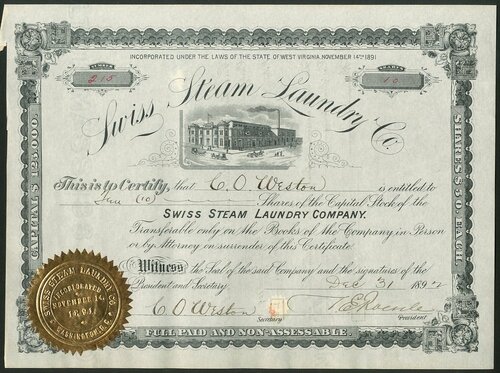 INCORPORATED UNDER THE LAWS OF THE STATE OF WEST VIRGINIA, NOVEMBER 14TH 1891
215
10
Swiss Steam Laundry Co.
CAPITAL $125,000.
SHARES $20. EACH
This is to Certify, that C. O. Weston is entitled to
Ten (10) Shares of the Capital Stock of the
SWISS STEAM LAUNDRY COMPANY.
Transferable only on the Books of the Company in Person
or by Attorney on surrender of this Certificate.
Witness the Seal of the said Company and the signatures of the
President and Secretary. Dec 31 1892
C O Weston
Secretary
President
FULL PAID AND NON-ASSESSABLE.
SWISS STEAM LAUNDRY CO.
INCORPORATED
NOVEMBER 14,
1891.
WASHINGTON, D.C.